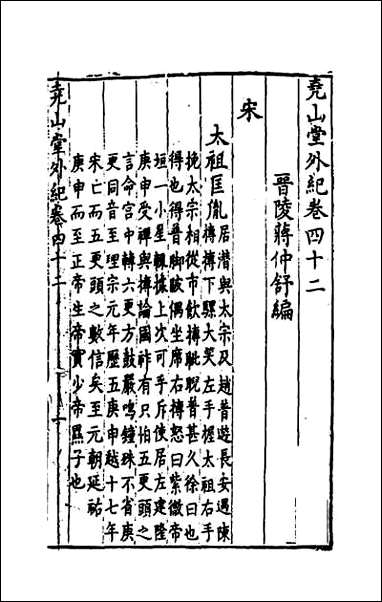 堯山堂外紀卷四十二
晉陵蔣仲舒編
宋
太祖匡胤
居潛與太宗及趙普遊長安遇陳
摶摶下騾大笑左手握太祖右手
挽太宗相從市飲摶睥睨普甚久徐曰也
得也得普脚跛偶坐席右摶怒曰紫微帝
垣一小星輒據上次可乎斥使居左建隆
庚申受禪與摶論國祚有只怕五更頭之
言命宮中轉六更方鼓嚴鳴鐘殊不省庚
更同音至理宗元年歷五庚申越十七年
宋亡而五更頭之數信矣至元朝延祐
庚申而至正帝生帝實少帝㬎子也
堯山堂外紀卷四十二